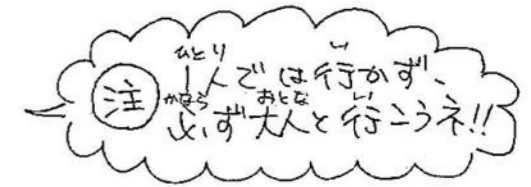 注
1人では行かず、
必ず大人と行こうネ!!